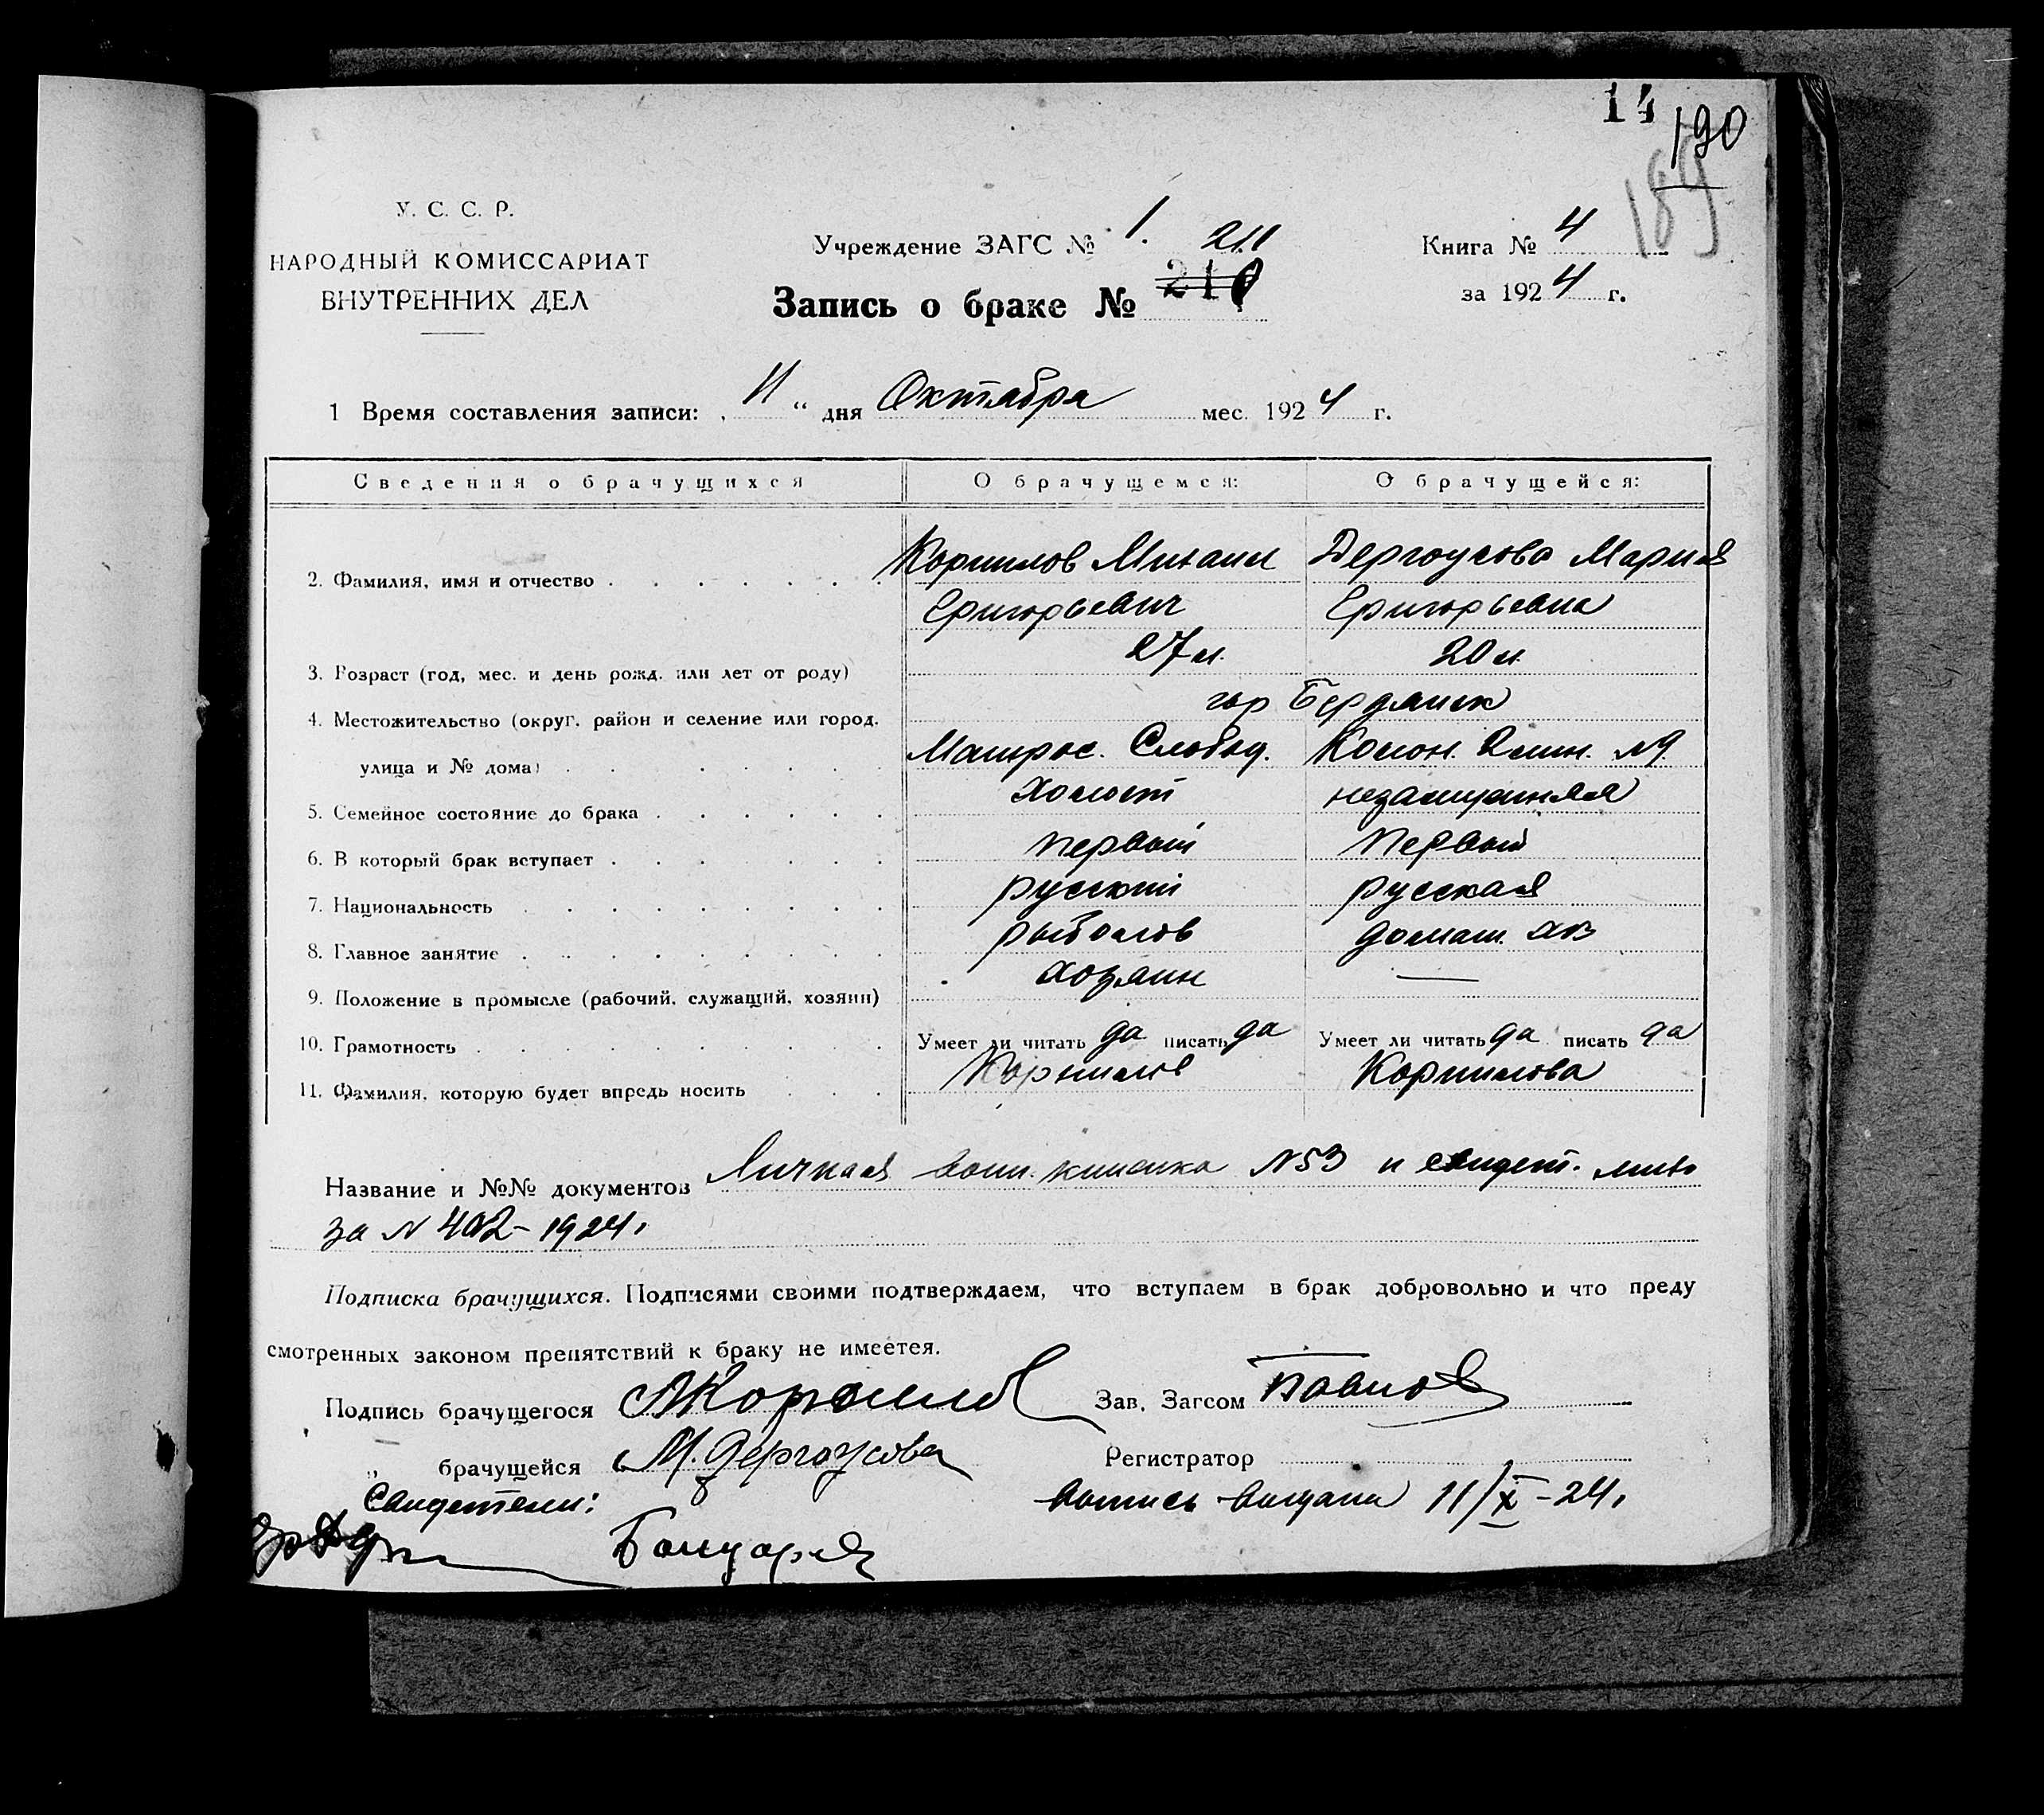 14
190
189
У. С. С. Р.
НАРОДНЫЙ КОМИССАРИАТ
ВНУТРЕННИХ ДЕЛ
Учреждение ЗАГС № 1.
211
Запись о браке № 210
Книга № 4
за 1924 г.
1 Время составления записи: „ 11 “ дня Октября мес. 1924 г.
Сведения о брачущихся О брачущемся: О брачущейся:
2. Фамилия, имя и отчество Корнилов Михаил Дергоусова Мария
Григорьевич Григорьевна
3. Возраст (год, мес. и день рожд. или лет от роду) 27 л. 20 л.
4. Местожительство (округ, район и селение или город, гор Бердянск
улица и № дома) Матрос. Слобод. Колон. №9.
5. Семейное состояние до брака холост незамужняя
6. В который брак вступает первый первый
7. Национальность русский русская
8. Главное занятие рыболов домаш. хоз
9. Положение в промысле (рабочий, служащий, хозяин) хозяин —
10. Грамотность Умеет ли читать да писать да Умеет ли читать да писать да
11. Фамилия, которую будет впредь носить Корнилов Корнилова
Название и №№ документов Личная воин. книжка №53 и свидет.
за N 402 - 1924.
Подписка брачущихся. Подписями своими подтверждаем, что вступаем в брак добровольно и что преду
смотренных законом препятствий к браку не имеется.
Подпись брачущегося МКорнилов Зав. Загсом
„ брачущейся М. Дергоусова Регистратор
Свидетели: выпись выдана 11/X - 24.